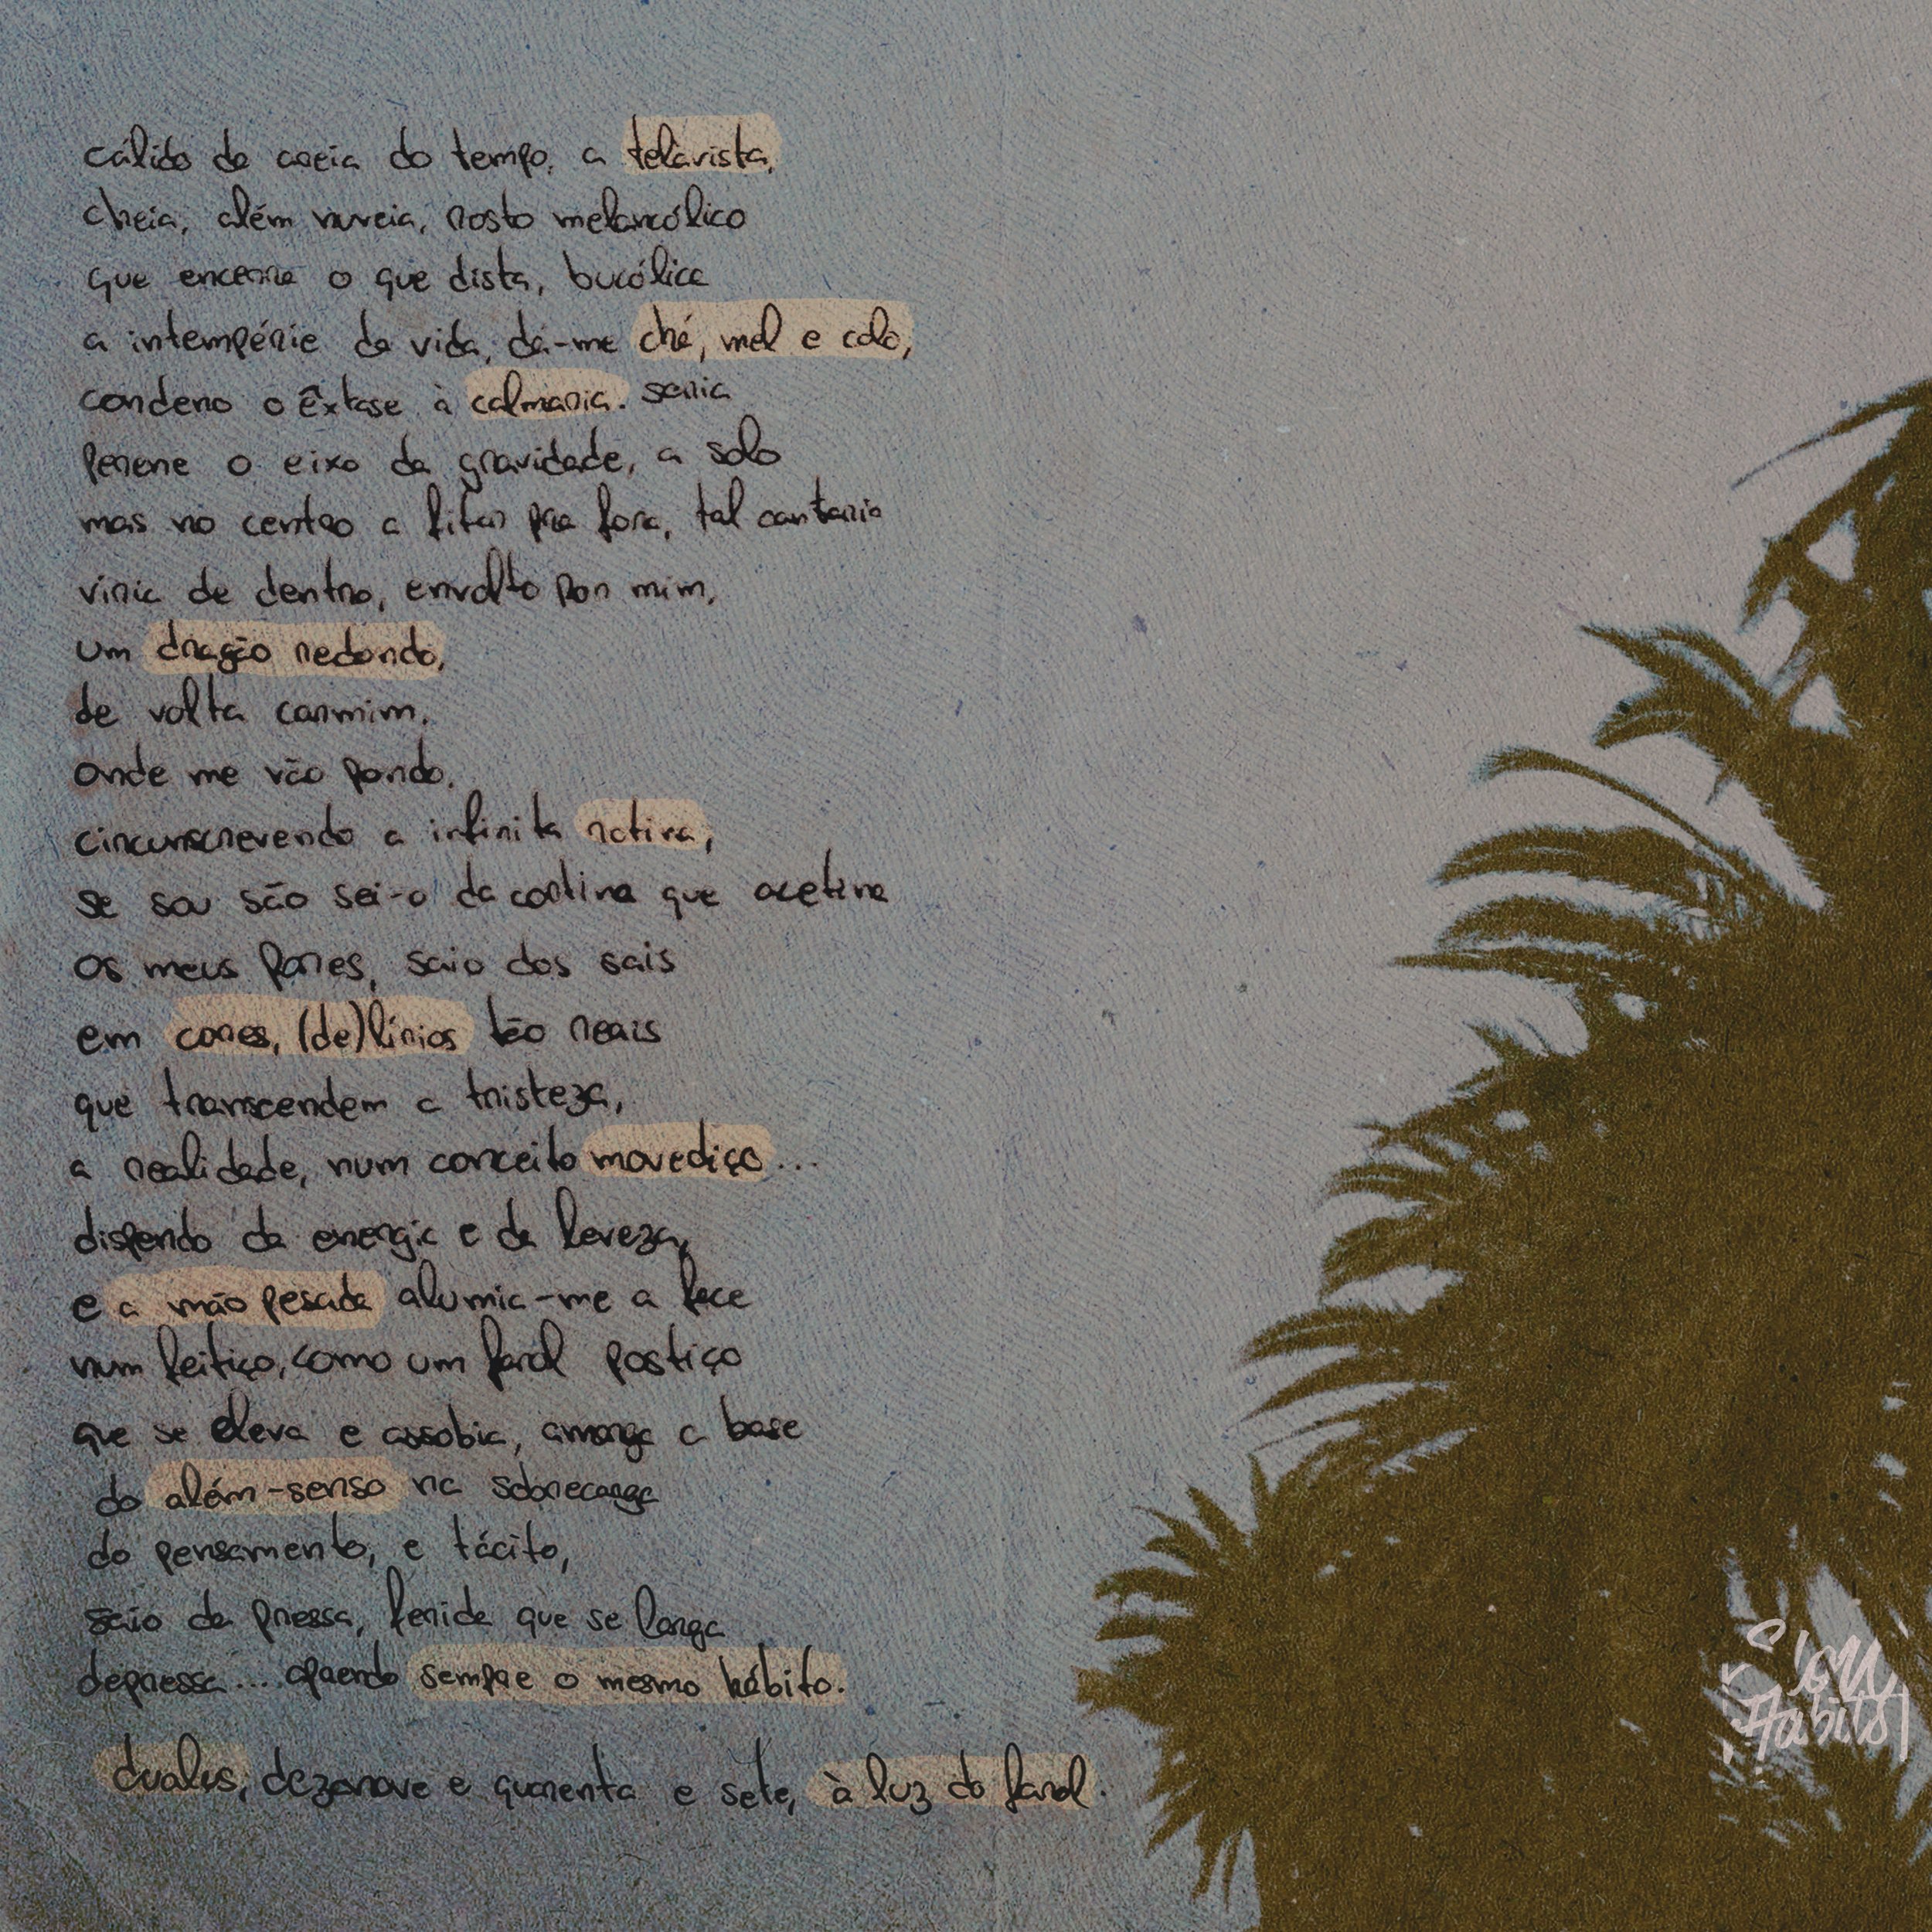 cálido da areia do tempo, a telavista,
cheia, além nuveia, rosto melancólico
que encerra o que dista, bucólica
a intempérie da vida, dá-me chá, mel e colo,
condeno o êxtase à calmaria. seria
perene o eixo da gravidade, a solo
mas no centro a fitar pra fora, tal cantaria
viria de dentro, envolto por mim,
um dragão redondo,
de volta carmim,
onde me vão pondo.
circunscrevendo a infinita rotina,
se sou são sei-o da cortina que acetina
os meus pores, saio dos sais
em cores, (de)lírios tão reais
que transcendem a tristeza,
a realidade, num conceito movediço...
dispendo da energia e da leveza,
e a mão pesada alumia-me a face
num feitiço, como um farol postiço
que se eleva e assobia, amarga a base
do além-senso na sobrecarga
do pensamento, e tácito,
saio da pressa, ferida que se larga
depressa.... quando sempre o mesmo hábito.
dualus, dezanove e quarenta e sete, à luz do farol.
Slow
Habits